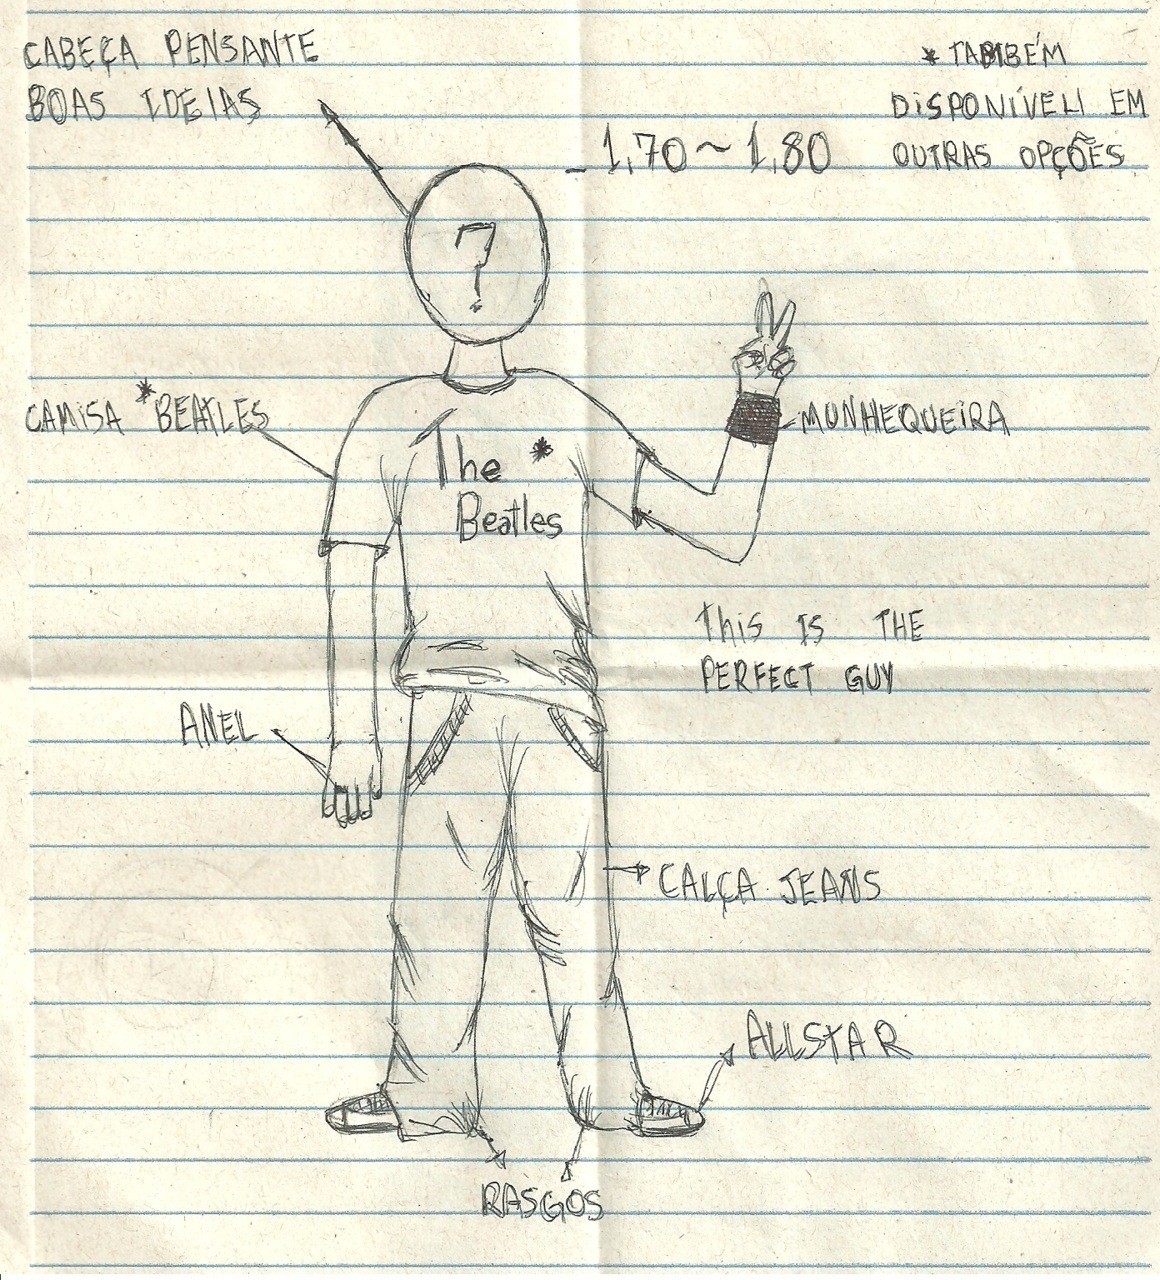 CABEÇA PENSANTE
BOAS IDEIAS
* TAMBÉM
DISPONÍVELI EM
OUTRAS OPÇÕES
1,70 ~ 1,80
?
CAMISA *BEATLES
The *
Beatles
MUNHEQUEIRA
This IS THE
PERFECT GUY
ANEL
CALÇA JEANS
ALLSTAR
RASGOS